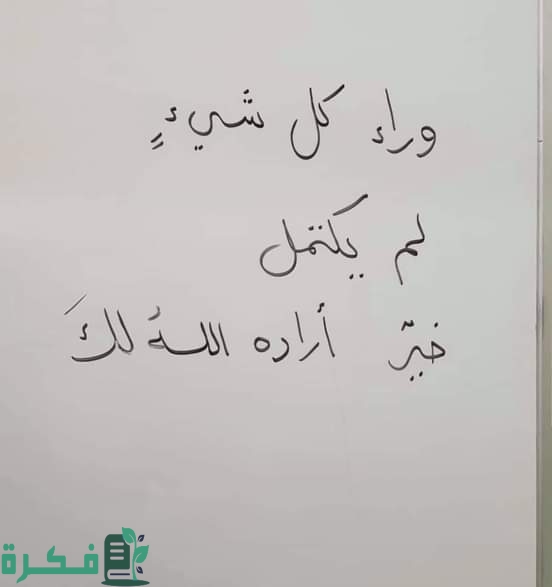 وراء كل شيءٍ
لم يكتمل
خيرٌ أراده اللهُ لكَ
فكرة